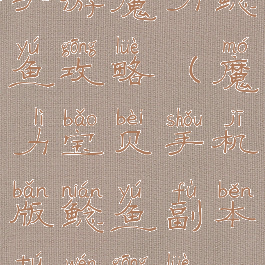 yú gōng lüè mó
鱼攻略（魔
lì bǎo bèi shǒu jī
力宝贝手机
bǎn nián yú fù běn
版鲶鱼副本